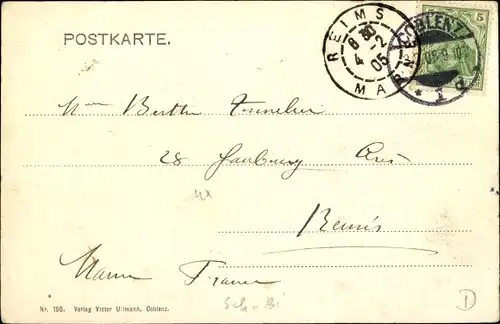 POSTKARTE.
REIMS
8 30
4 - 2
05
MARNE
COBLENZ
* 1 d
5
Mme Berthe
28 Faubourg
Reims
Marne France
Sch-Bi
D
Nr. 195. Verlag Victor Ullmann, Coblenz.